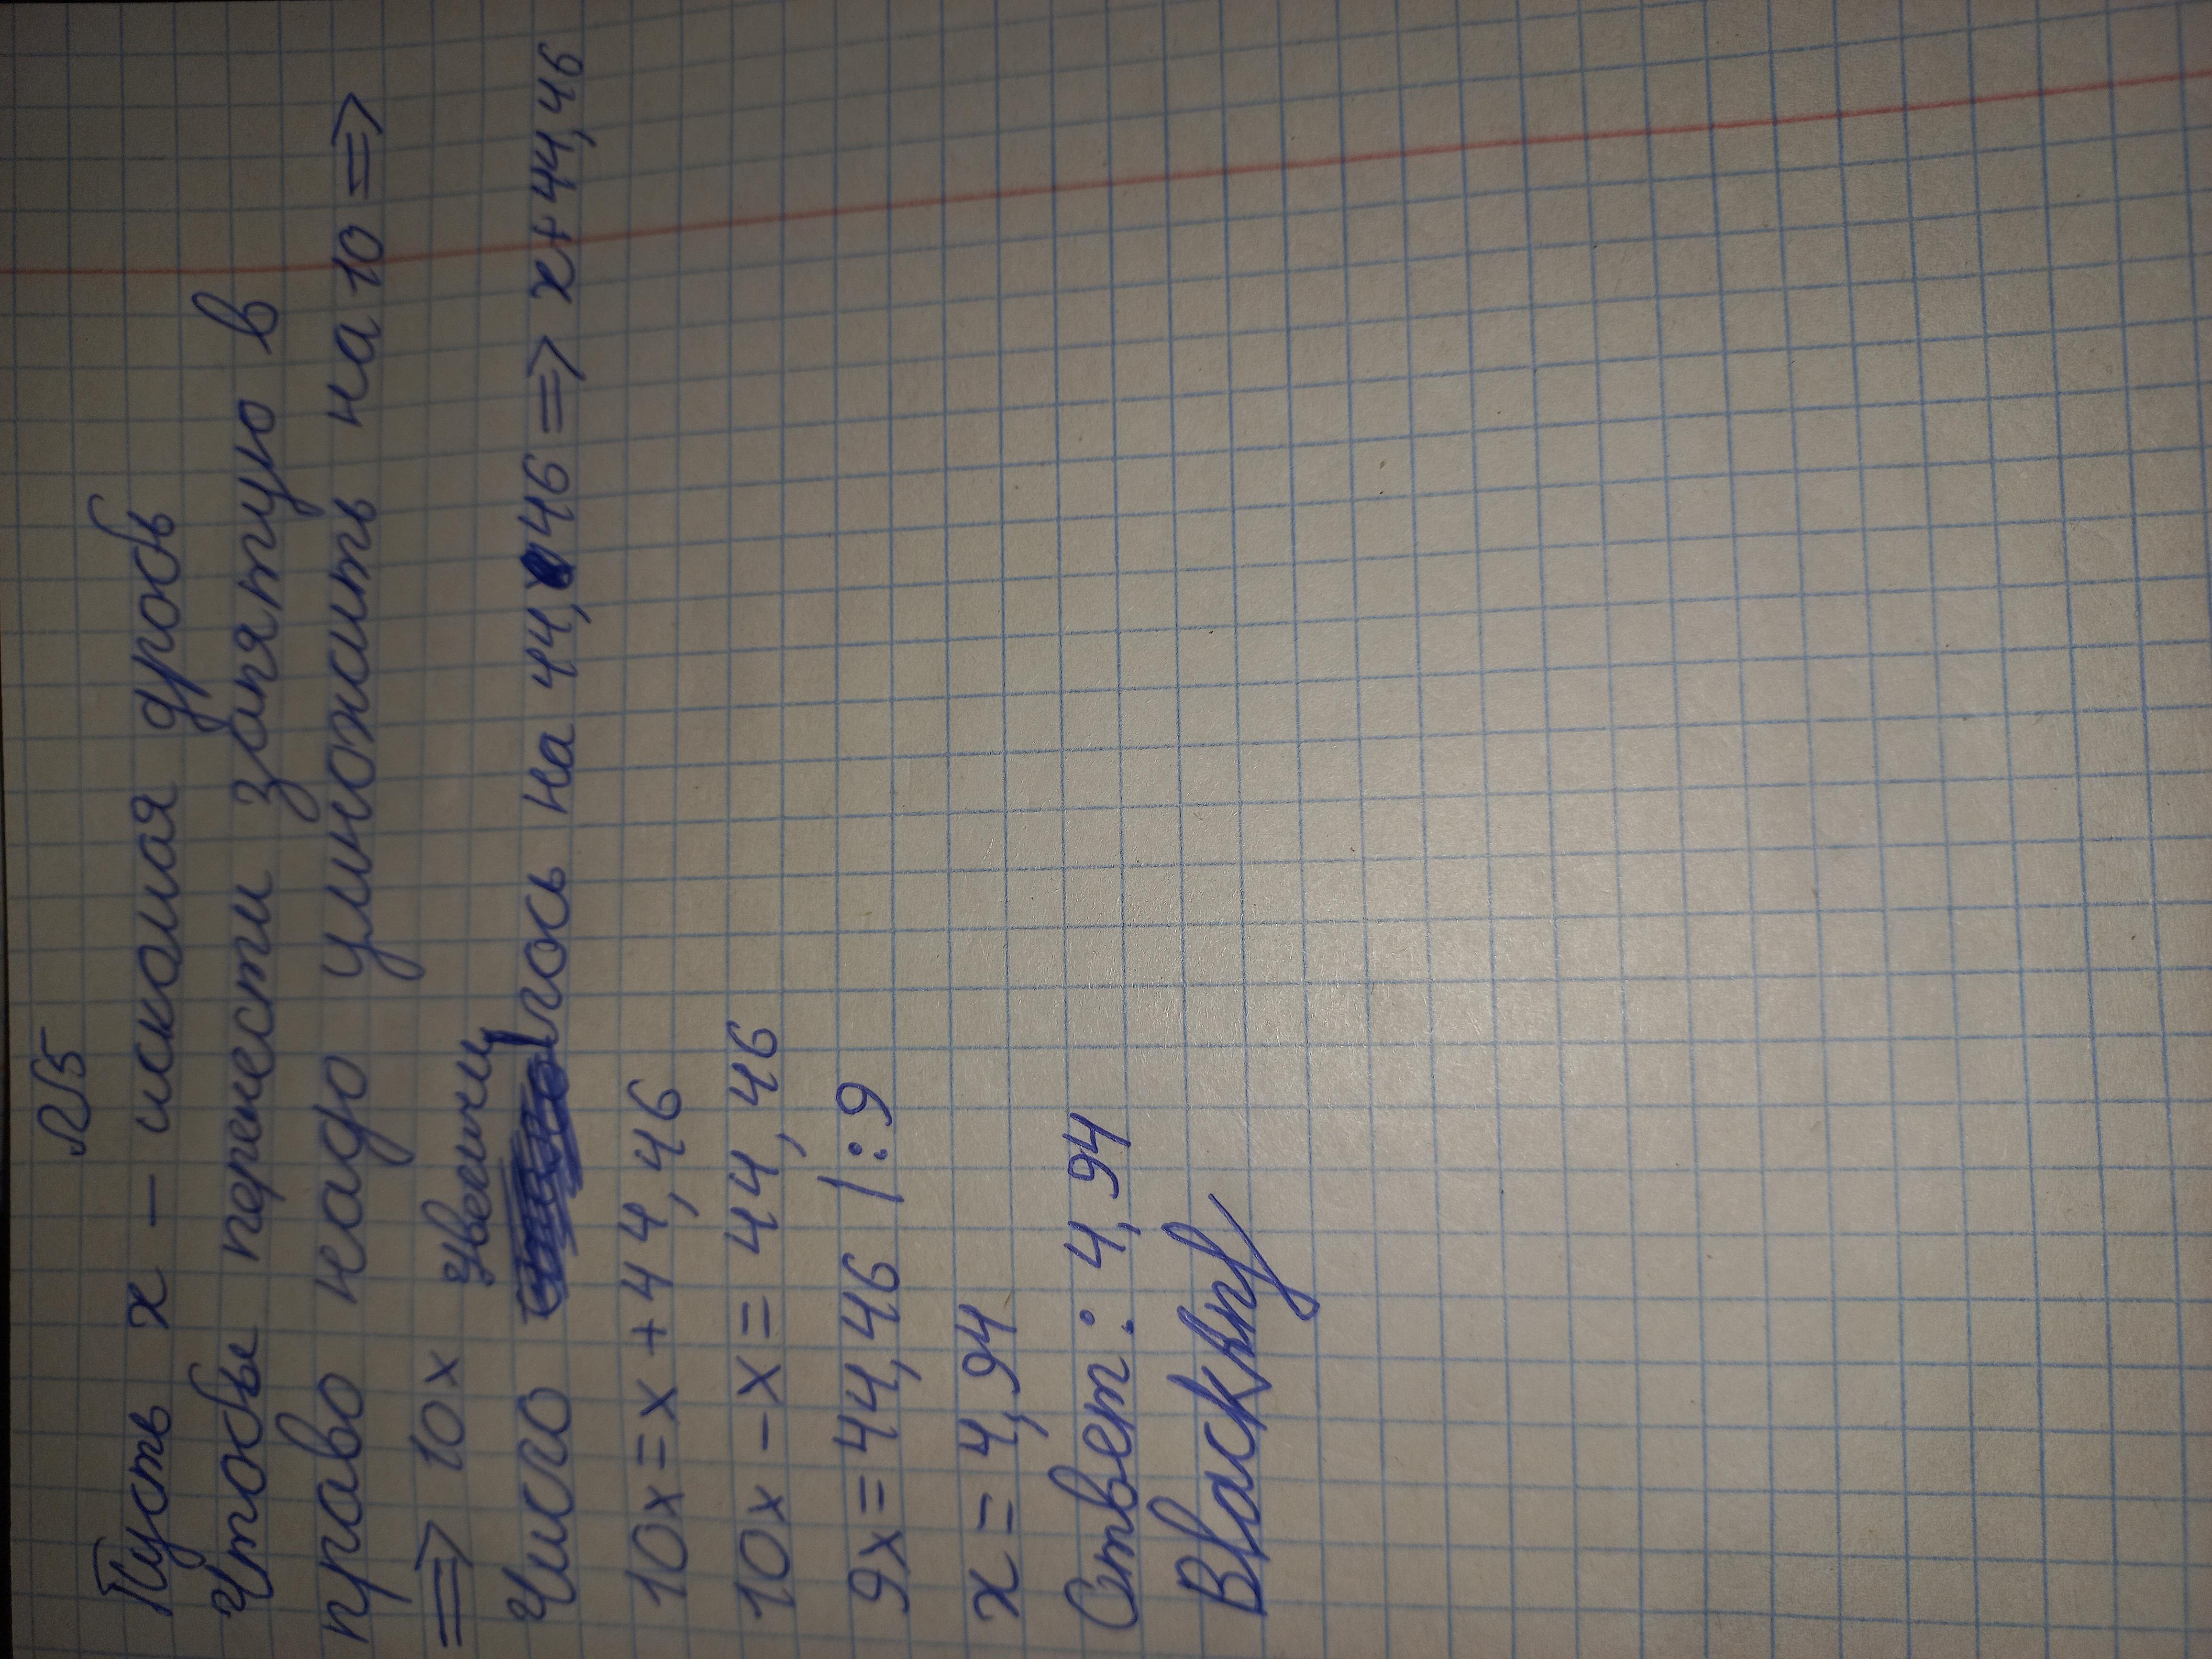 №5
Пусть x – искомая дробь
Чтобы перенести запятую в
право надо умножить на 10 =>
=> 10x
увеличи
Число лось на 44,46 => x+44,46
10x=x+44,46
10x-x=44,46
9x=44,46 |:9
x=4,94
Ответ: 4,94